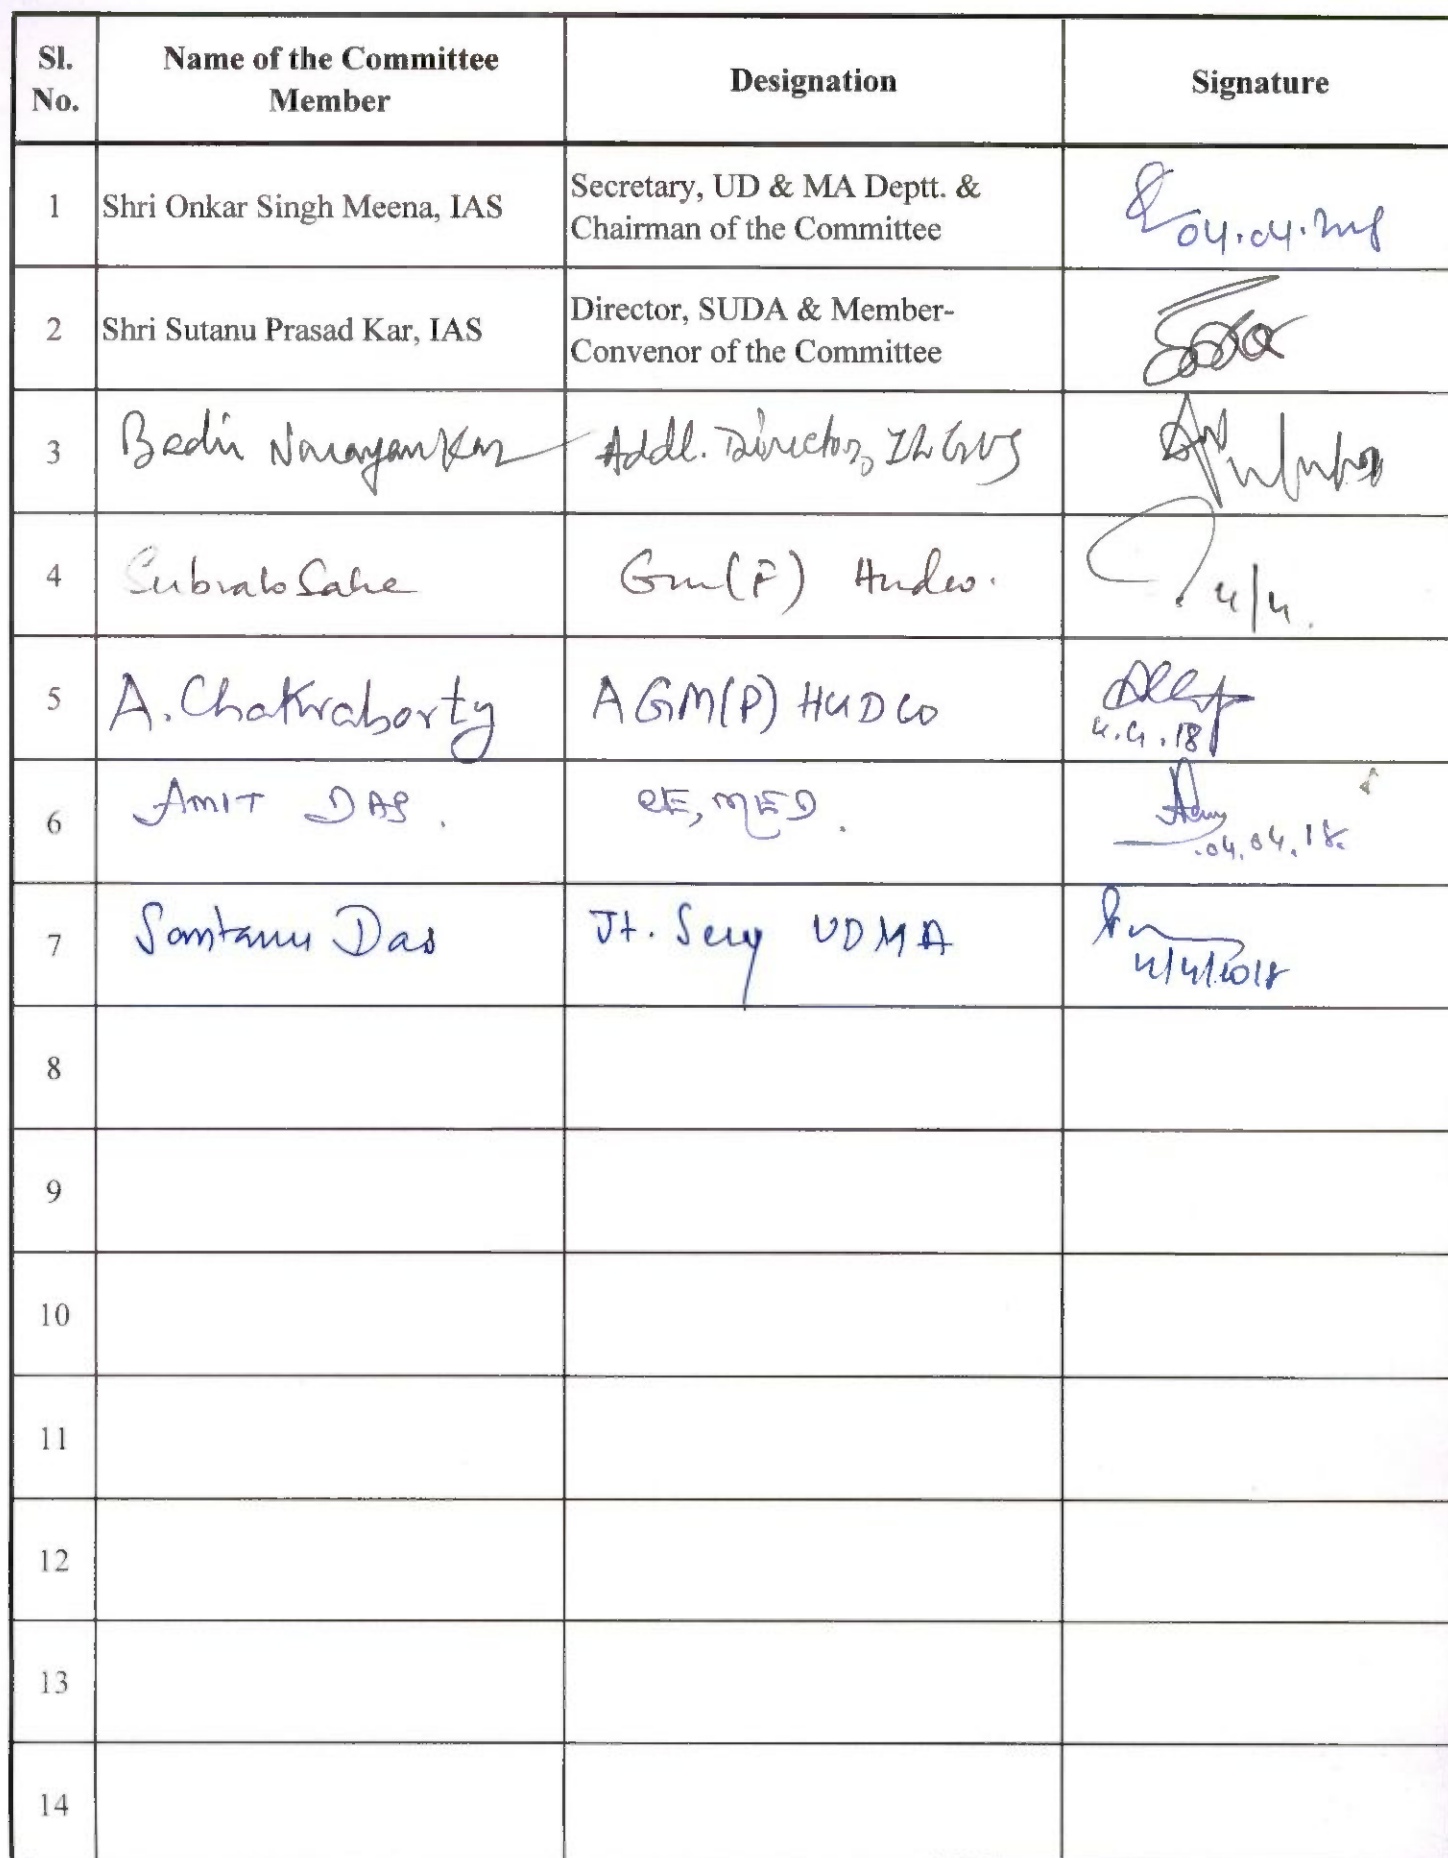 Sl. No. Name of the Committee Member Designation Signature
1 Shri Onkar Singh Meena, IAS Secretary, UD & MA Deptt. & Chairman of the Committee 04.04.
2 Shri Sutanu Prasad Kar, IAS Director, SUDA & Member-Convenor of the Committee
3 Badri Narayan Kar Addl. Director, ILGUS
4 Subrato Saha Gm(P) Hudco. 4/4.
5 A. Chakraborty AGM(P) HUDCO 4.4.18
6 AMIT DAS. CE, MED. 04.04.18.
7 Santanu Das Jt. Secy UDMA 4/4/2018
8
9
10
11
12
13
14